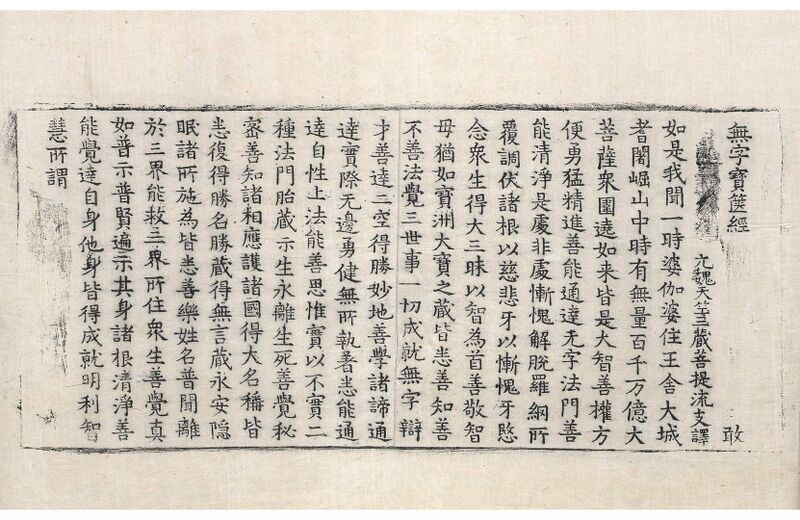 無字寶篋經
敢
元魏天竺三藏菩提流支譯
如是我聞一時婆伽婆住王舍大城
耆闍崛山中時有無量百千万億大
菩薩衆圍遶如来皆是大智善權方
便勇猛精進善能通達无字法門善
能清淨是處非處慚愧解脫羅網所
覆調伏諸根以慈悲牙以慚愧牙愍
念衆生得大三昧以智為首善敬智
母猶如寶洲大寶之藏皆悉善知善
不善法覺三世事一切成就無字辯
才善達二空得勝妙地善學諸諦通
達實際无邊勇健無所執著悉能通
達自性上法能善思惟實以不實二
種法門胎蔵示生永離生死善覺秘
密善知諸相應護諸國得大名稱皆
悉復得勝名勝蔵得無言蔵永安隠
眠諸所施為皆悉善樂姓名普聞離
於三界能救三界所住衆生善覺真
如普示普賢遍示其身諸根清淨善
能覺達自身他身皆得成就明利智
慧所謂